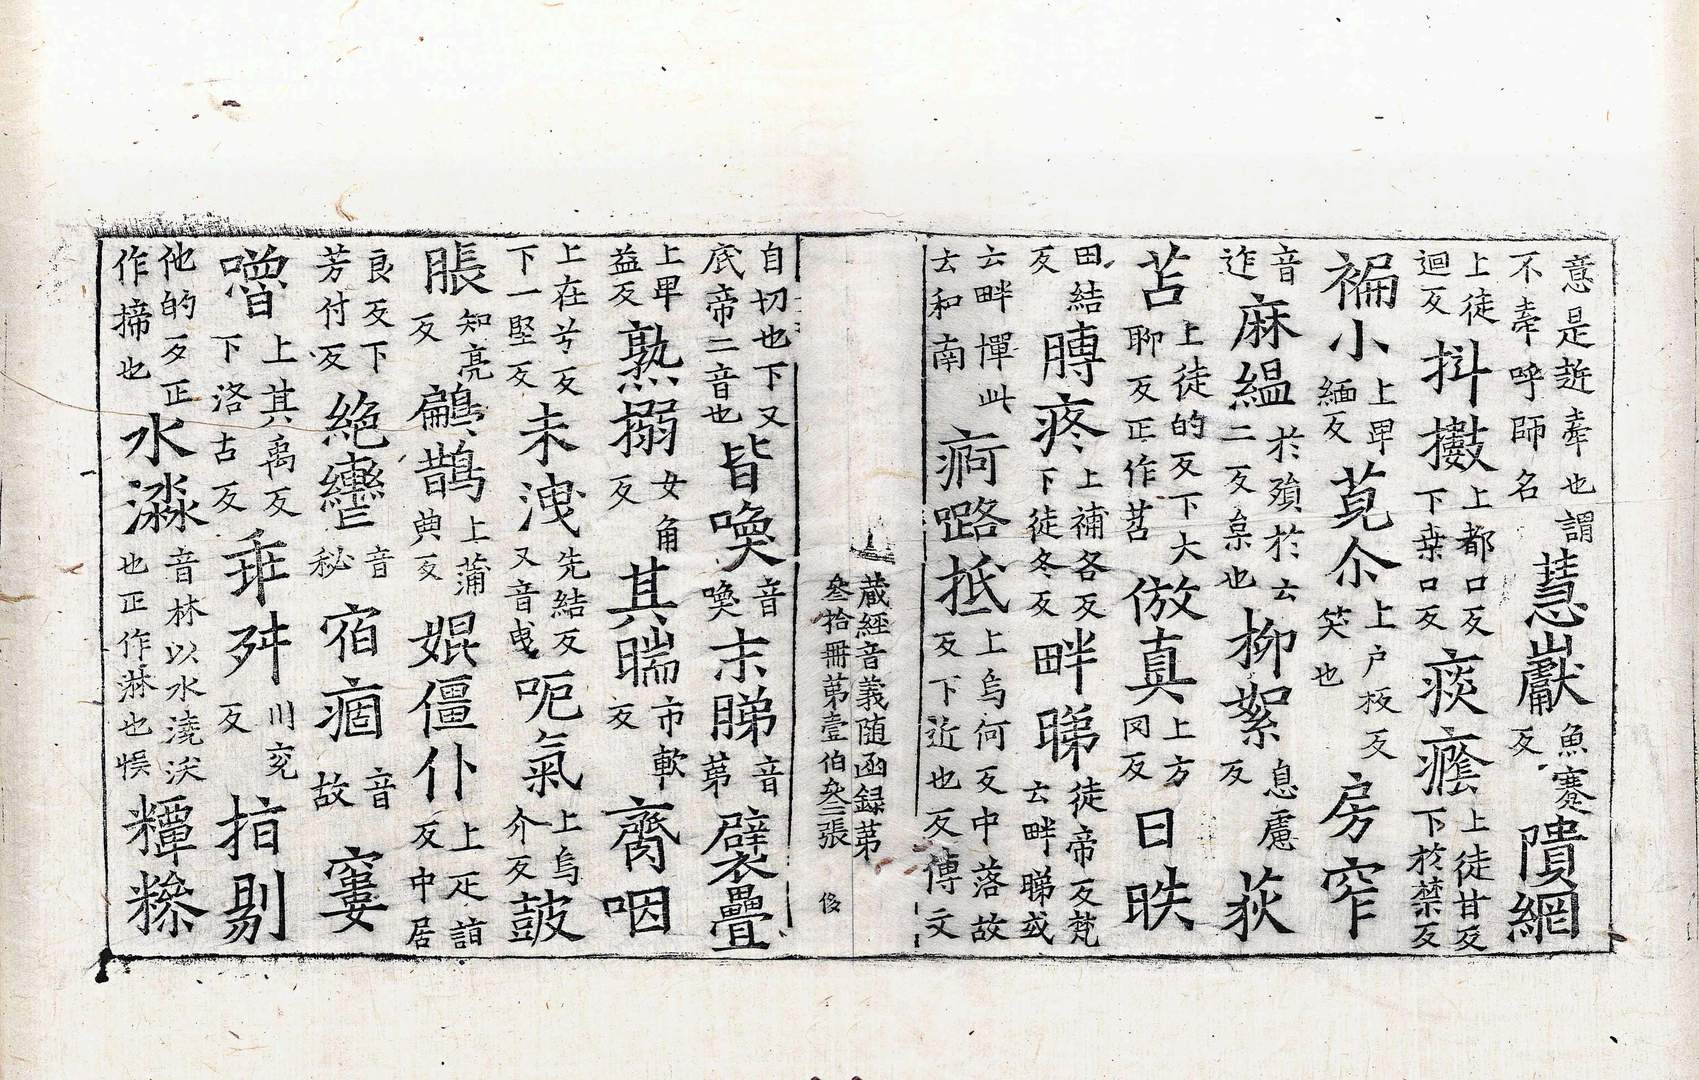 意是䛠牽也謂不牽呼師名慧巘魚蹇反隤網
上徒迴反抖擻上都口反下桒口反痰癊上徒甘反下於禁反
褊小上卑緬反莧尒上户板反笑也房窄
音迮麻緼於殞於云二反枲也柳絮息慮反荻
苫上徒的反下大聊反正作苕倣真上方罔反日昳
田結反膞疼上補各反下徒冬反畔睇徒帝反梵云畔睇或
云畔憚此云和南痾路抵上烏何反中落故反下近也反傳文
藏經音義随函録苐
叄拾冊苐壹伯叄三張 俊
自切也下又底帝二音也皆喚音喚末睇音苐襞疊
上卑益反熟搦女角反其腨市軟反臍咽
上在兮反下一堅反未洩先結反又音曵呃氣上烏介反皷
脹知亮反鶣鵲上蒲典反婫僵仆上疋詣反中居
良反下芳付反絶轡音秘宿痼音故窶
噜上其禹反下洛古反乖舛川兖反指剔
他的反正作揥也水淋音林以水澆沃也正作淋也悮糝